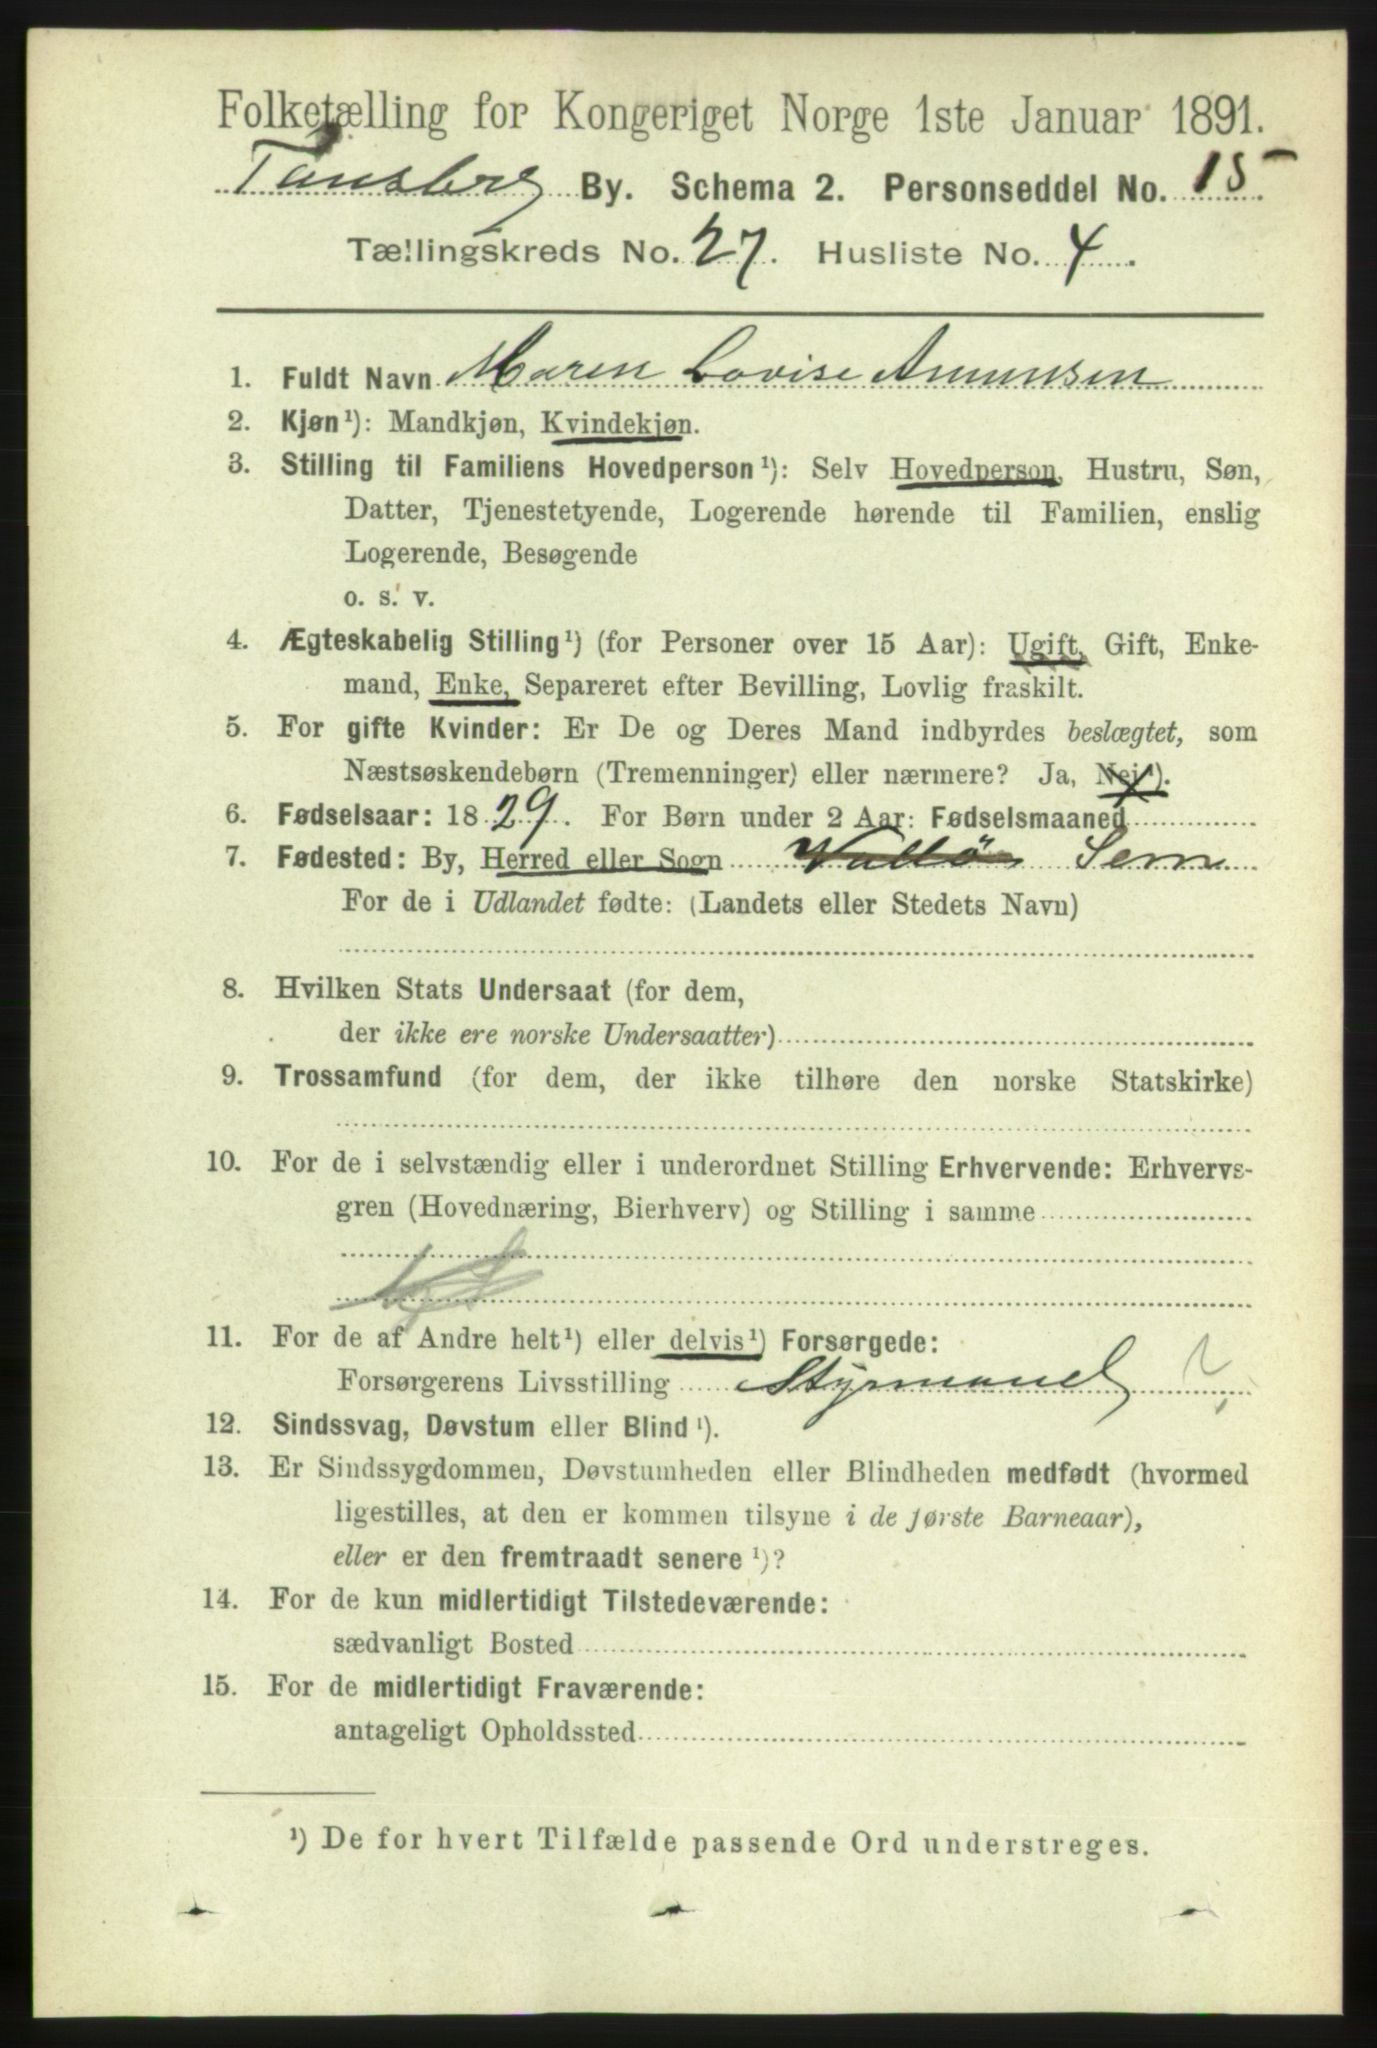 Folketælling for Kongeriget Norge 1ste Januar 1891.
Tønsberg By. Schema 2. Personseddel No. 15
Tællingskreds No. 27. Husliste No. 4.
1. Fuldt Navn Maren Lovise Amunsen
2. Kjøn¹): Mandkjøn, Kvindekjøn.
3. Stilling til Familiens Hovedperson¹): Selv Hovedperson, Hustru, Søn,
Datter, Tjenestetyende, Logerende hørende til Familien, enslig
Logerende, Besøgende
o. s. v.
4. Ægteskabelig Stilling¹) (for Personer over 15 Aar): Ugift, Gift, Enke-
mand, Enke, Separeret efter Bevilling, Lovlig fraskilt.
5. For gifte Kvinder: Er De og Deres Mand indbyrdes beslægtet, som
Næstsøskendebørn (Tremenninger) eller nærmere? Ja, Nei¹).
6. Fødselsaar: 1829. For Børn under 2 Aar: Fødselsmaaned
7. Fødested: By, Herred eller Sogn Vallø Sem
For de i Udlandet fødte: (Landets eller Stedets Navn)
8. Hvilken Stats Undersaat (for dem,
der ikke ere norske Undersaatter)
9. Trossamfund (for dem, der ikke tilhøre den norske Statskirke)
10. For de i selvstændig eller i underordnet Stilling Erhvervende: Erhvervs-
gren (Hovednæring, Bierhverv) og Stilling i samme
11. For de af Andre helt¹) eller delvis¹) Forsørgede:
Forsørgerens Livsstilling Styrmand ?
12. Sindssvag, Døvstum eller Blind¹).
13. Er Sindssygdommen, Døvstumheden eller Blindheden medfødt (hvormed
ligestilles, at den er kommen tilsyne i de første Barneaar),
eller er den fremtraadt senere¹)?
14. For de kun midlertidigt Tilstedeværende:
sædvanligt Bosted
15. For de midlertidigt Fraværende:
antageligt Opholdssted
¹) De for hvert Tilfælde passende Ord understreges.